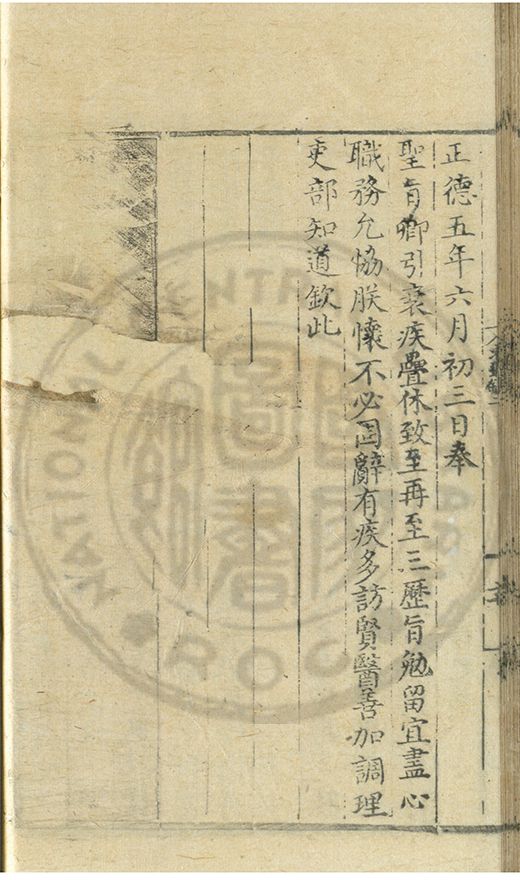 正德五年六月初三日奉
聖旨卿引衰疾疊休致至再至三歷旨勉留宜盡心
職務允協朕懷不必固辭有疾多訪賢醫善加調理
吏部知道欽此